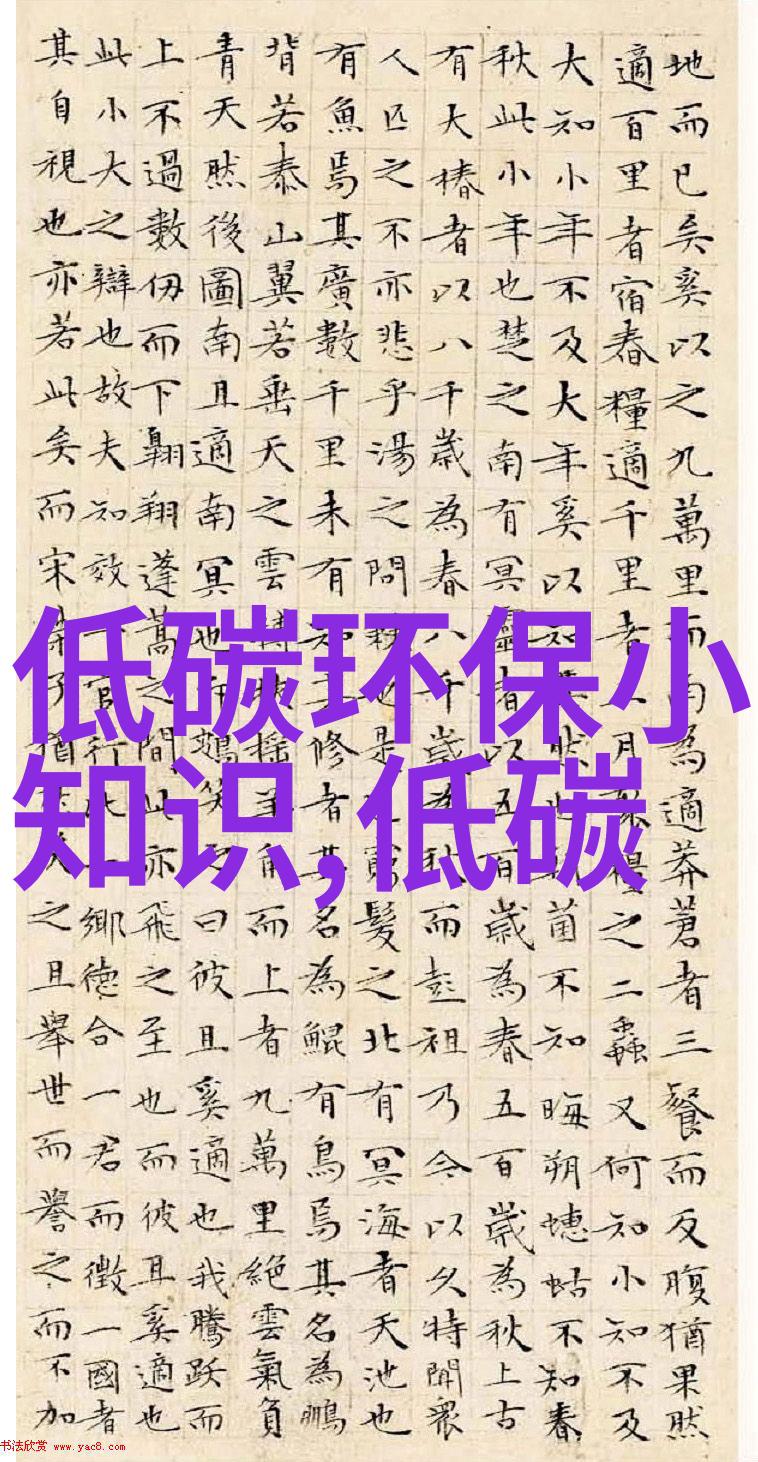 地而已矣奚以之九萬里而南為適莽蒼者三餐而反腹猶果然
適百里者宿舂糧適千里者月聚糧之二蟲又何知小知不及
大知小年不及大年奚以知其然也朝菌不知晦朔蟪蛄不知春
秋此小年也楚之南有冥靈者以五百歲為春五百歲為秋上古
有大椿者以八千歲為春八千歲為秋而彭祖乃今以久特聞衆
人匹之不亦悲乎湯之問棘也是窮髮之北有冥海者天池也
有魚焉其廣數千里未有知其修者其名為鯤有鳥焉其名為鵬
背若泰山翼若垂天之雲摶扶搖羊角而上者九萬里絕雲氣負
青天然後圖南且適南冥也斥鴳笑之曰彼且奚適也我騰躍而
上不過數仞而下翱翔蓬蒿之間此亦飛之至也而彼且奚適也
此小大之辯也故夫知效一官行比一鄉德合一君而徵一國者
其自視也亦若此矣而宋榮子猶然笑之且舉世而譽之而不加
低碳环保小
知识,低碳
书法欣赏 www.yac8.com